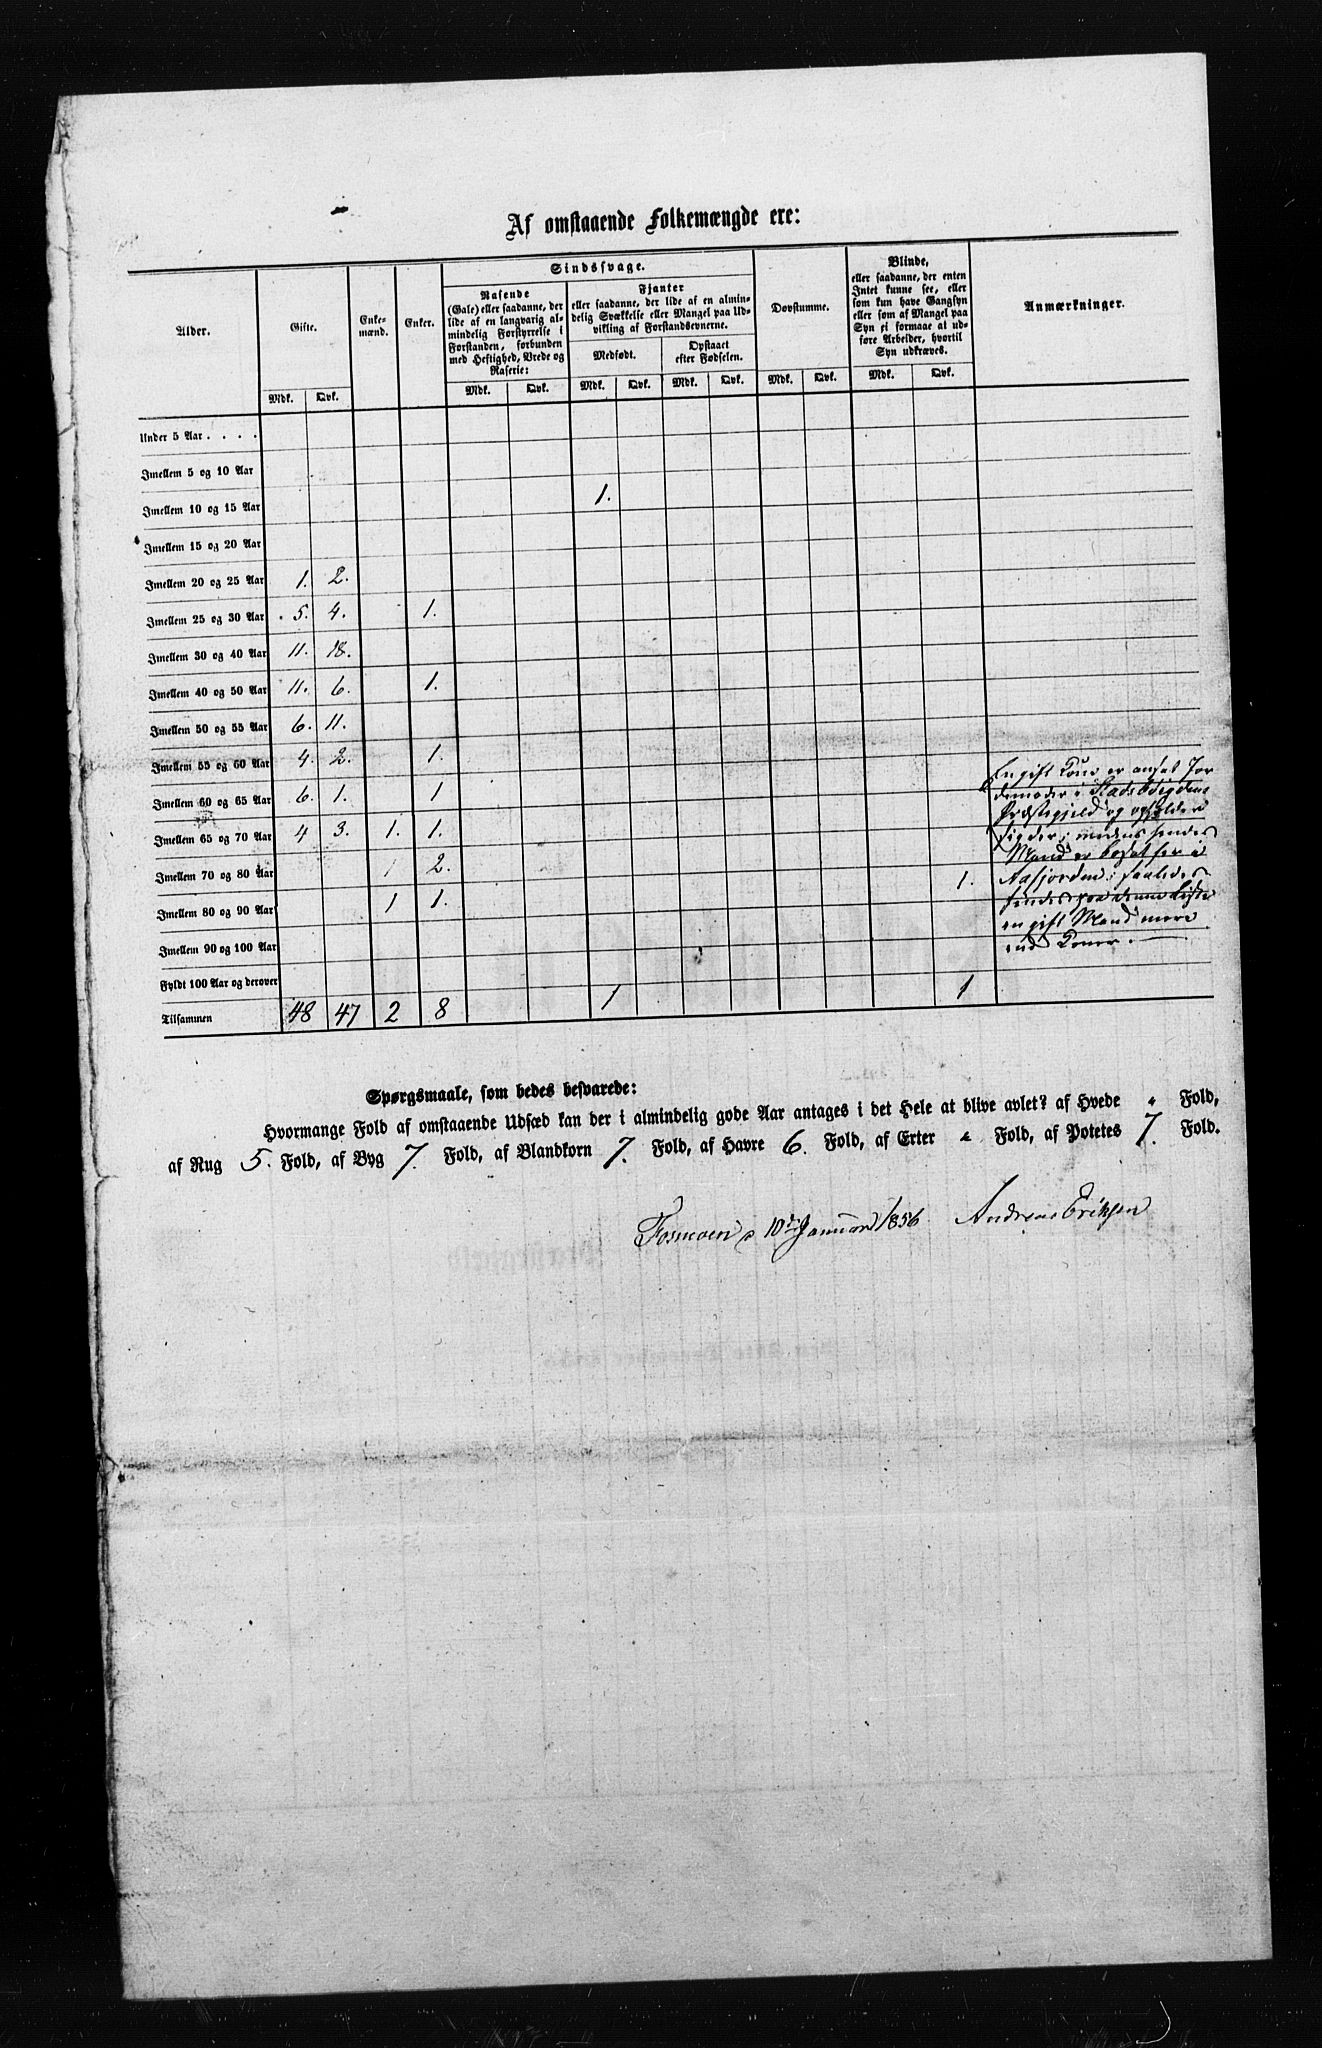 Af omstaaende Folkemængde ere:
Alder. Gifte. Enkemænd. Enker. Sindssvage. Døvstumme. Blinde, Anmærkninger.
Rasende
(Gale) eller saadanne, der
lide af en langvarig al-
mindelig Forstyrrelse i
Forstanden, forbunden
med Heftighed, Vrede og
Raserie:
Fjanter
eller saadanne, der lide af en almin-
delig Svækkelse eller Mangel paa Ud-
vikling af Forstandsevnerne.
Medfødt. Opstaaet
efter Fødselen.
eller saadanne, der enten
Intet kunne see, eller
som kun have Gangsyn
eller som af Mangel paa
Syn ei formaae at ud-
føre Arbeider, hvortil
Syn udkræves.
Mdk. Qvk. Mdk. Qvk. Mdk. Qvk. Mdk. Qvk. Mdk. Qvk. Mdk. Qvk.
Under 5 Aar . . . .
Imellem 5 og 10 Aar
Imellem 10 og 15 Aar 1.
Imellem 15 og 20 Aar
Imellem 20 og 25 Aar 1. 2.
Imellem 25 og 30 Aar 5. 4. 1.
Imellem 30 og 40 Aar 11. 18.
Imellem 40 og 50 Aar 11. 6. 1.
Imellem 50 og 55 Aar 6. 11.
Imellem 55 og 60 Aar 4. 2. 1.
Imellem 60 og 65 Aar 6. 1. 1
Imellem 65 og 70 Aar 4 3. 1. 1.
Imellem 70 og 80 Aar 1 2. 1.
Imellem 80 og 90 Aar 1 1.
Imellem 90 og 100 Aar
Fyldt 100 Aar og derover
Tilsammen 48 47 2 8 1 1
En gift Kone er ansat Jor
demoder i Stadsbygdens
Præstegjeld og opholder
sig der; medens hendes
Mand er bosat her i
Aafjorden; saaledes
findes paa denne Liste
en gift Mand mere
end Koner.
Spørgsmaale, som bedes besvarede:
Hvormange Fold af omstaaende Udsæd kan der i almindelig gode Aar antages i det Hele at blive avlet? af Hvede " Fold,
af Rug 5. Fold, af Byg 7. Fold, af Blandkorn 7. Fold, af Havre 6. Fold, af Erter " Fold, af Potetes 7. Fold.
10de Januar 1856 Andreas Eriksen